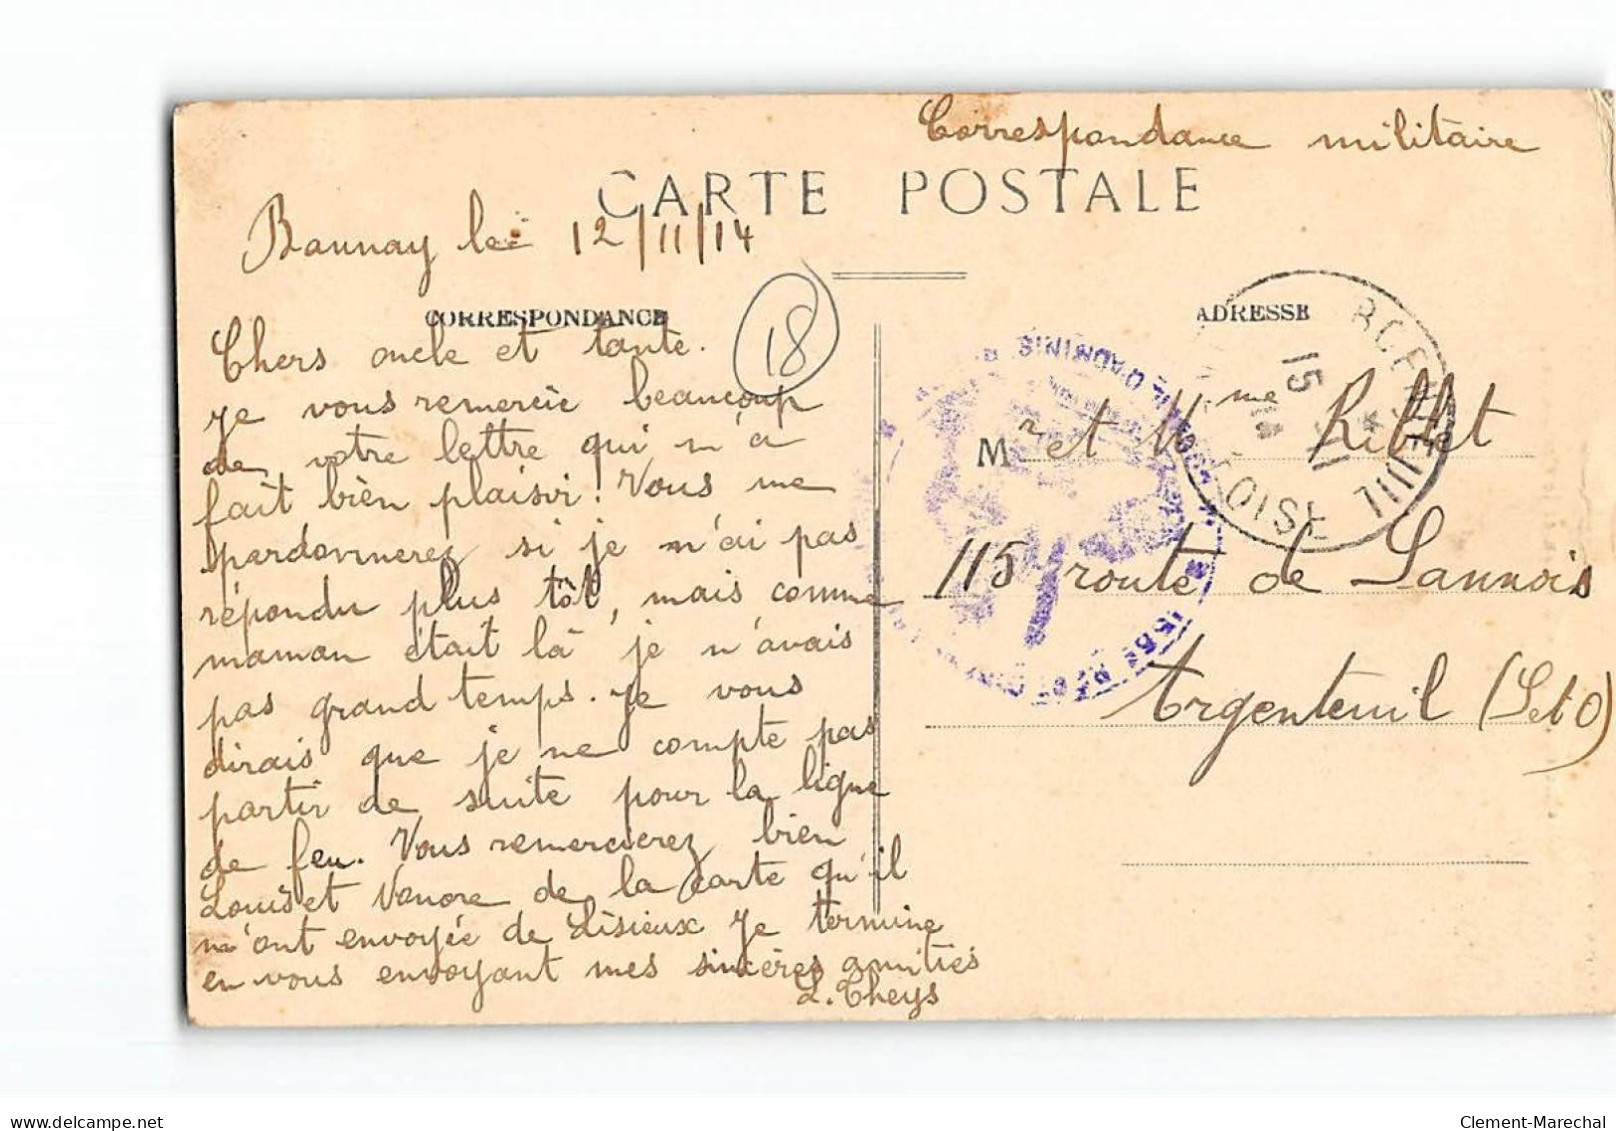 Correspondance militaire
CARTE POSTALE
Bannay le 12/11/14
CORRESPONDANCE
18
Chers oncle et tante.
Je vous remercie beaucoup
de votre lettre qui m'a
fait bien plaisir! Vous me
pardonnerez si je n'ai pas
répondu plus tôt, mais comme
maman était là je n'avais
pas grand temps. Je vous
dirais que je ne compte pas
partir de suite pour la ligne
de feu. Vous remercierez bien
Louis et de la carte qu'il
m'ont envoyée de Lisieux Je termine
en vous envoyant mes sincères amitiés
L. Theys
ADRESSE
15
OISE
D'ADMINIS
155e
Mr et Mme Riblet
115 route de Sannois
Argenteuil (S et O)
delcampe.net
Clement-Marechal